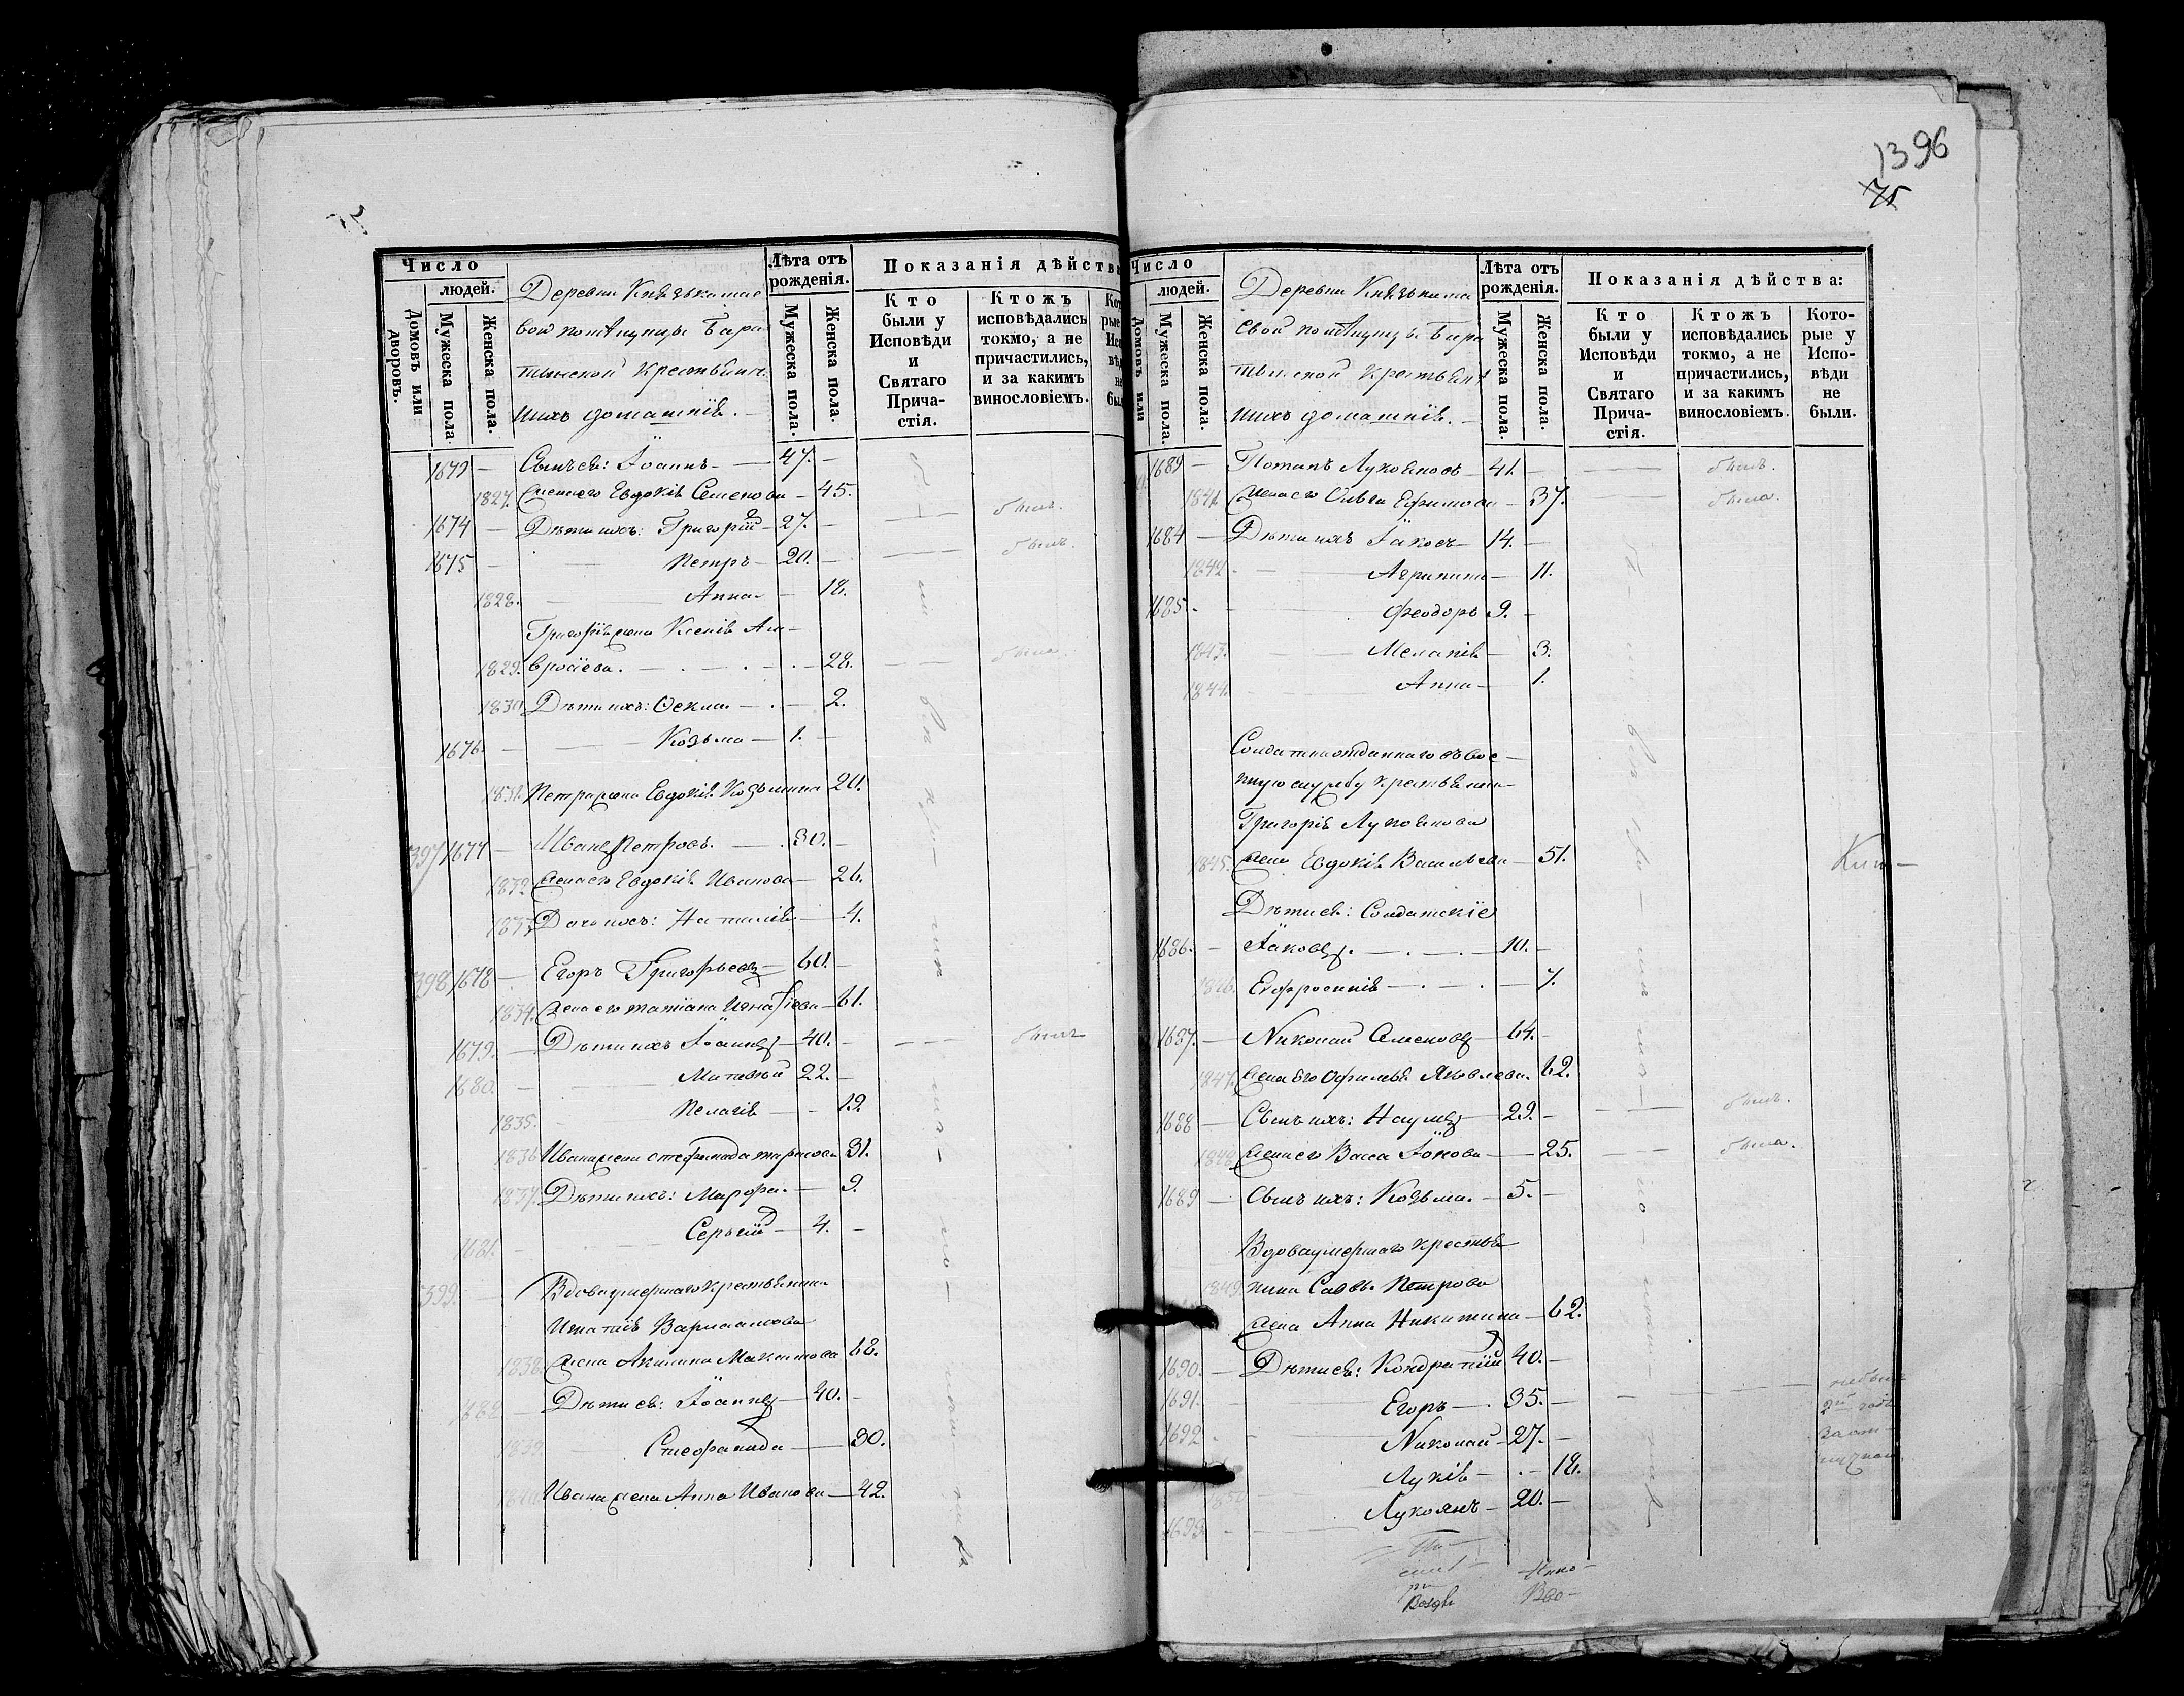 1396
75
Число
людей.
Домовъ или дворовъ.
Мужеска пола
Женска пола.
Деревни Князькама
вой помѣщицы Бара
тынской крестьяне
ихъ домашнія. —
Лѣта отъ рожденія.
Мужеска пола.
Женска пола.
Показанія дѣйства
Кто были у Исповѣди и Святаго Причастія.
Ктожъ исповѣдались токмо, а не причастились, и за какимъ винословіемъ.
1679 — Сынъ ея: Іоаннъ — 47. —
1827. Жена его Евдокія Семенова — 45.
1674 — Дѣти ихъ: Григорій — 27. — былъ.
1675 — Петръ — 20. — былъ.
1828. Анна — 18.
Григорія жена Ксенія Ам—
1829. вросіева. — 28. была.
1830 Дѣти ихъ: Ѳекла — 2.
1676. — Козьма — 1. —
1831. Петра жена Евдокія Козьмина 20.
397 1677 — Иванъ Петровъ. — 30. —
1832 Жена его Евдокія Иванова — 26.
1833 Дочь ихъ: Наталія — 4.
398 1678 — Егоръ Григорьевъ — 60. —
1834. Жена его Татіана Игнатіева — 61.
1679. — Дѣти ихъ Іоаннъ — 40. — былъ
1680. — Матвѣй 22. —
1835. Пелагія — 19.
1836 Ивана жена Стефанида 31.
1837. Дѣти ихъ: Марфа. — 9.
1681. — Сергій — 4. —
399. — Вдова умершаго крестьянина
Игнатія Варлаамова
1838. жена Акилина Максимова 68.
1682 — Дѣти ея: Іоаннъ — 40. —
1839 Стефанида — 30.
1840 Ивана жена Анна Иванова — 42.
Число
людей.
Домовъ или
Мужеска пола.
Женска пола.
Деревни Князькама
вой помѣщицы Бара
тынской крестьяне
ихъ домашнія. —
Лѣта отъ рожденія.
Мужеска пола.
Женска пола.
Показанія дѣйства:
Кто были у Исповѣди и Святаго Причастія.
Ктожъ исповѣдались токмо, а не причастились, и за какимъ винословіемъ.
Которые у Исповѣди не были.
1683 — Потапъ Лукояновъ — 41. — былъ.
1841. Жена его Ольга Ефимова — 37. была.
1684 — Дѣти ихъ Іаковъ — 14. —
1842. — Агрипина — 11.
1685. — Ѳеодоръ 9. —
1843. Меланія — 3.
1844. Анна — 1.
Солдатка отданнаго въ вое—
нную службу крестьянина
Григорія Лукоянова
1845. жена Евдокія Васильева — 51.
Дѣти ея: Солдатскіе
1686. — Іаковъ. — 10. —
1846. Евфросинія — 7.
1687. — Николай Семеновъ — 64. —
1847. Жена его Яковлева. 62.
1688 — Сынъ ихъ: Наумъ — 29. — былъ.
1848 Жена его Васса Іонова — 25. была.
1689 — Сынъ ихъ: Козьма. — 5. —
Вдова умершаго крестья
1849. нина Саввы Петрова
жена Анна Никитина — 62.
1690. — Дѣти ея: Кондратій 40. —
1691. — Егоръ — 35. —
1692. — Николай — 27. —
Лукія — 18.
1693. — Лукоянъ — 20. —